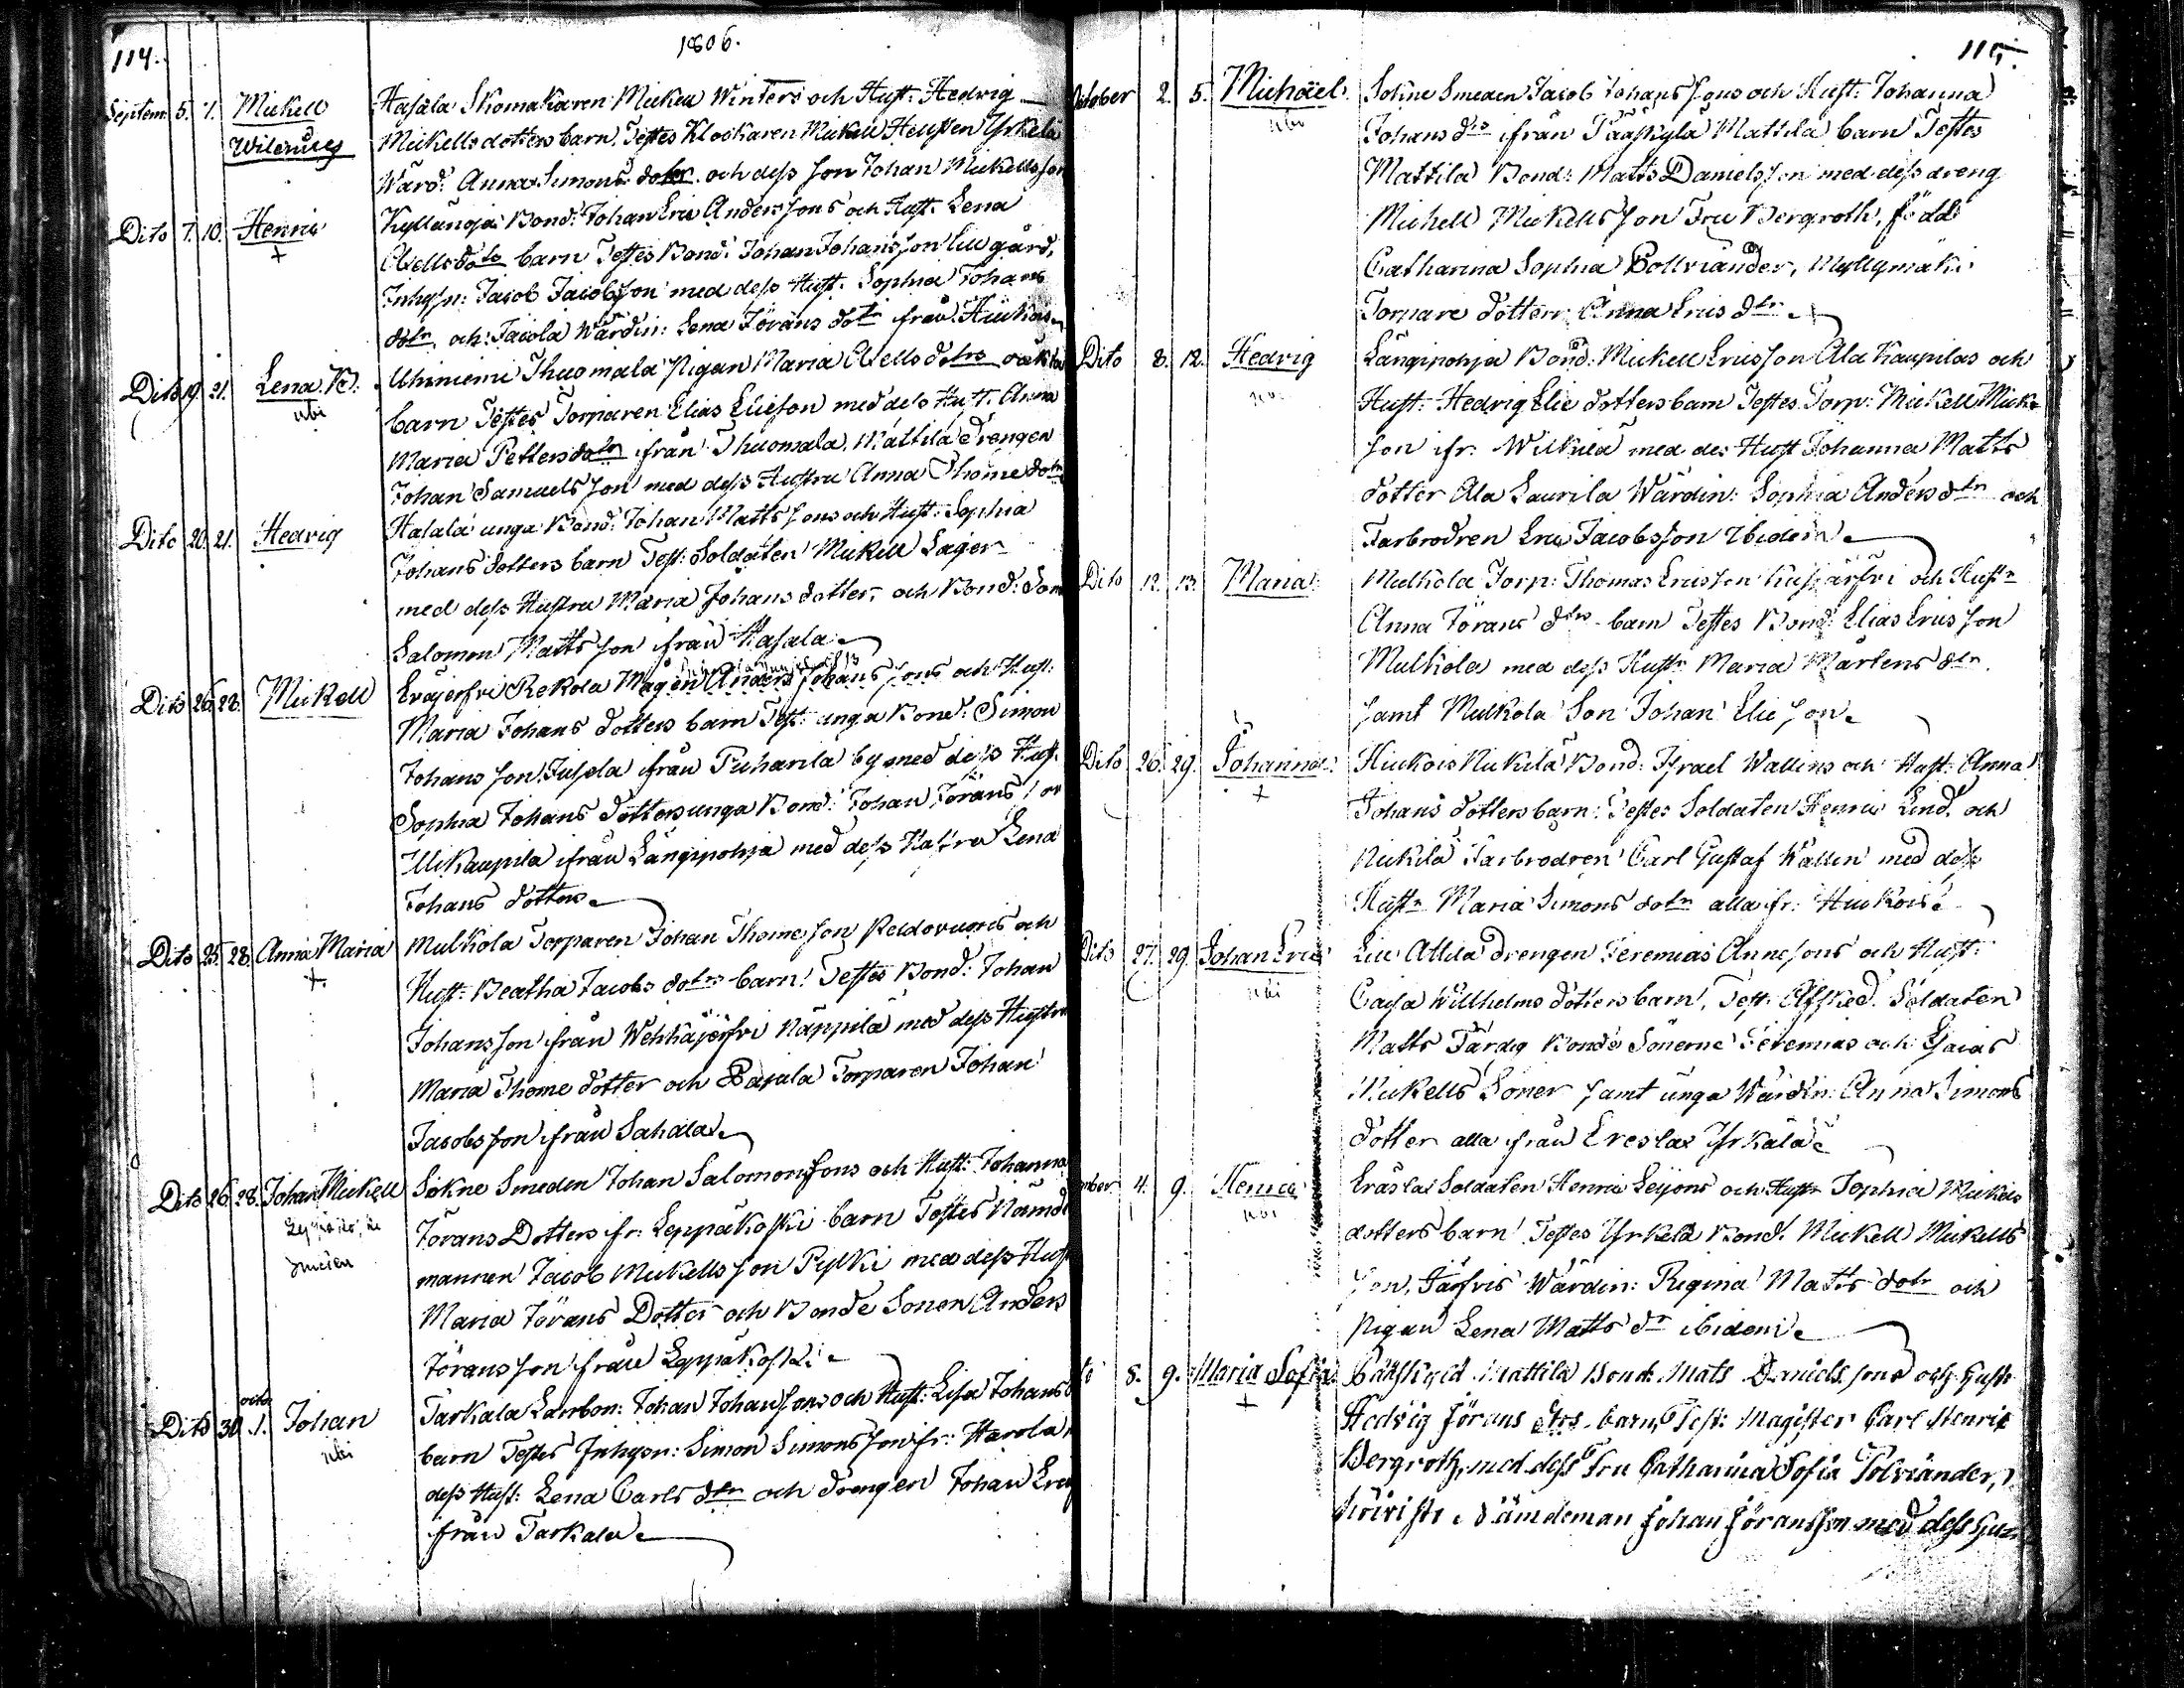 114.
1806.
Septem: 5. 7. Mickell Hasala Skomakaren Mickell Winters och Hust: Hedvig
Mickells dotters barn. Testes Klockaren Mickell Yrkela
Wärd: Anna Simons dotr. och dess son Johan Mickellsson
Dito 7. 10. Henric Bond: Johan Eric Anderssons och Hust: Lena
+ Axells dotrs barn Testes Bond: Johan Johansson gård,
Inhysn: Jacob Jacobsson med dess Hust: Sophia Johans
dotr. och Jacola Wärdin: Lena Jörans dotr ifrån
Dito 19. 21. Lena K. Uhiniemi Thuomala Pigan Maria Axells dotrs oäkta
ubi barn Testes Torparen Elias Elieson med dess Hust. Anna
Maria Petters dotr ifrån Thuomala. Mattila drengen
Johan Samuelsson med dess Hustru Anna Thome dotr
Dito 20. 21. Hedvig Halala unga Bond: Johan Mattssons och Hust: Sophia
Johans dotters barn Test: Soldaten Mickell Lager
med dess Hustru Maria Johans dotter, och Bond: Son
Salomon Mattsson ifrån Hasala
Dito 26. 28. Mickell Eräjerfvi Rekola Mågen Anders Johanssons och Hust:
Maria Johans dotters barn Test: unga Bond: Simon
Johansson Jusela ifrån Puharila by med dess Hust.
Sophia Johans dotter unga Bond: Johan Jöransson
Ulikaupila ifrån Längipohja med dess Hustru Lena
Johans dotter
Dito 25. 28. Anna Maria Mulkola Torparen Johan Thomeson Peldovuoris och
+ Hust: Beatha Jacobs dotrs barn! Testes Bond: Johan
Johansson ifrån Wehkajerfvi Näppilä med dess Hustru
Maria Thome dotter och Pajala Torparen Johan
Jacobsson ifrån Sahala
Dito 26. 28. Johan Mickell Sokne Smeden Johan Salomonssons och Hust: Johanna
Jörans Dotters ifr: Leppäkoski barn Testes Nämde
mannen Jacob Mickellsson Pylki med dess Hust
Maria Jörans Dotter och Bonde Sonen Anders
Jöransson ifrån Leppäkoski
Dito 30. octo 1. Johan Tarkala Landbon: Johan Johanssons och Hust: Lisa Johans
ubi barn Testes Inhysn: Simon Simonsson fr: Harola
dess Hust: Lena Carls dtr och drengen Johan Eric
från Tarkala
115.
October 2. 5. Michaël Sokne Smeden Jacob Johanssons och Hust: Johanna
ubi Johans drs ifrån Pääskylä Mattila barn Testes
Mattila Bond: Matts Danielsson med dess dreng
Mickell Mickellsson Fru Bergroth, född
Catharina Sophia Polviander, Myllymäki
Torpare dotter Anna Erics dtr
Dito 8. 12. Hedvig Längipohja Bond: Mickell Ericsson Ala Kaupilas och
Hust: Hedvig Elie dotters barn Testes Torp: Mickell Mick
son ifr: Wilkilä med des Hust Johanna Matts
dotter Ala Laurila Wärdin: Sophia Anders dtr och
Farbrodren Eric Jacobsson Ibidem
Dito 12. 13. Maria Mulkola Torp: Thomas Ericsson och Hustr
Anna Jörans drs barn Testes Bond: Elias Ericsson
Mulkola med dess Hustr Maria Mårtens dtr
samt Mulkola Son Johan Elieson
Dito 26. 29. Johanna Hiukois Nickilä Bond: Israel Wallins och Hust: Anna
+ Johans dotters barn: Testes Soldaten Henric Lind och
Nickilä Farbrodren Carl Gustaf Wallin med dess
Hustr Maria Simons dotr alla fr: Hiukois
Dito 27. 29. Johan Eric Attila drengen Jeremias Annesons och Hust:
ubi Caisa Willhelms dotters barn, Test: Afsked: Soldaten
Matts Färdig Bonde Sönerne Jeremias och Esaias
Mickells Söner samt unga Wärdin: Anna Simons
dotter alla ifrån Ereslax Yrkälä
4. 9. Henric Eräslax Soldaten Henric Leijons och Hustr Sophia Mickels
ubi dotters barn! Testes Yrkelä Bond: Mickell Mickells
son, Järfvis Wärdin: Regina Matts dotr och
pigan Lena Matts dr ibidem
8. 9. Maria Sofia Pääskylä Mattila Bond: Mats Danielssons och Hust:
+ Hedvig Jörans drs barn, Test: Magister Carl Henric
Bergroth, med dess Fru Catharina Sofia Polviander,
Nämdeman Johan Jöransson med dess Hu